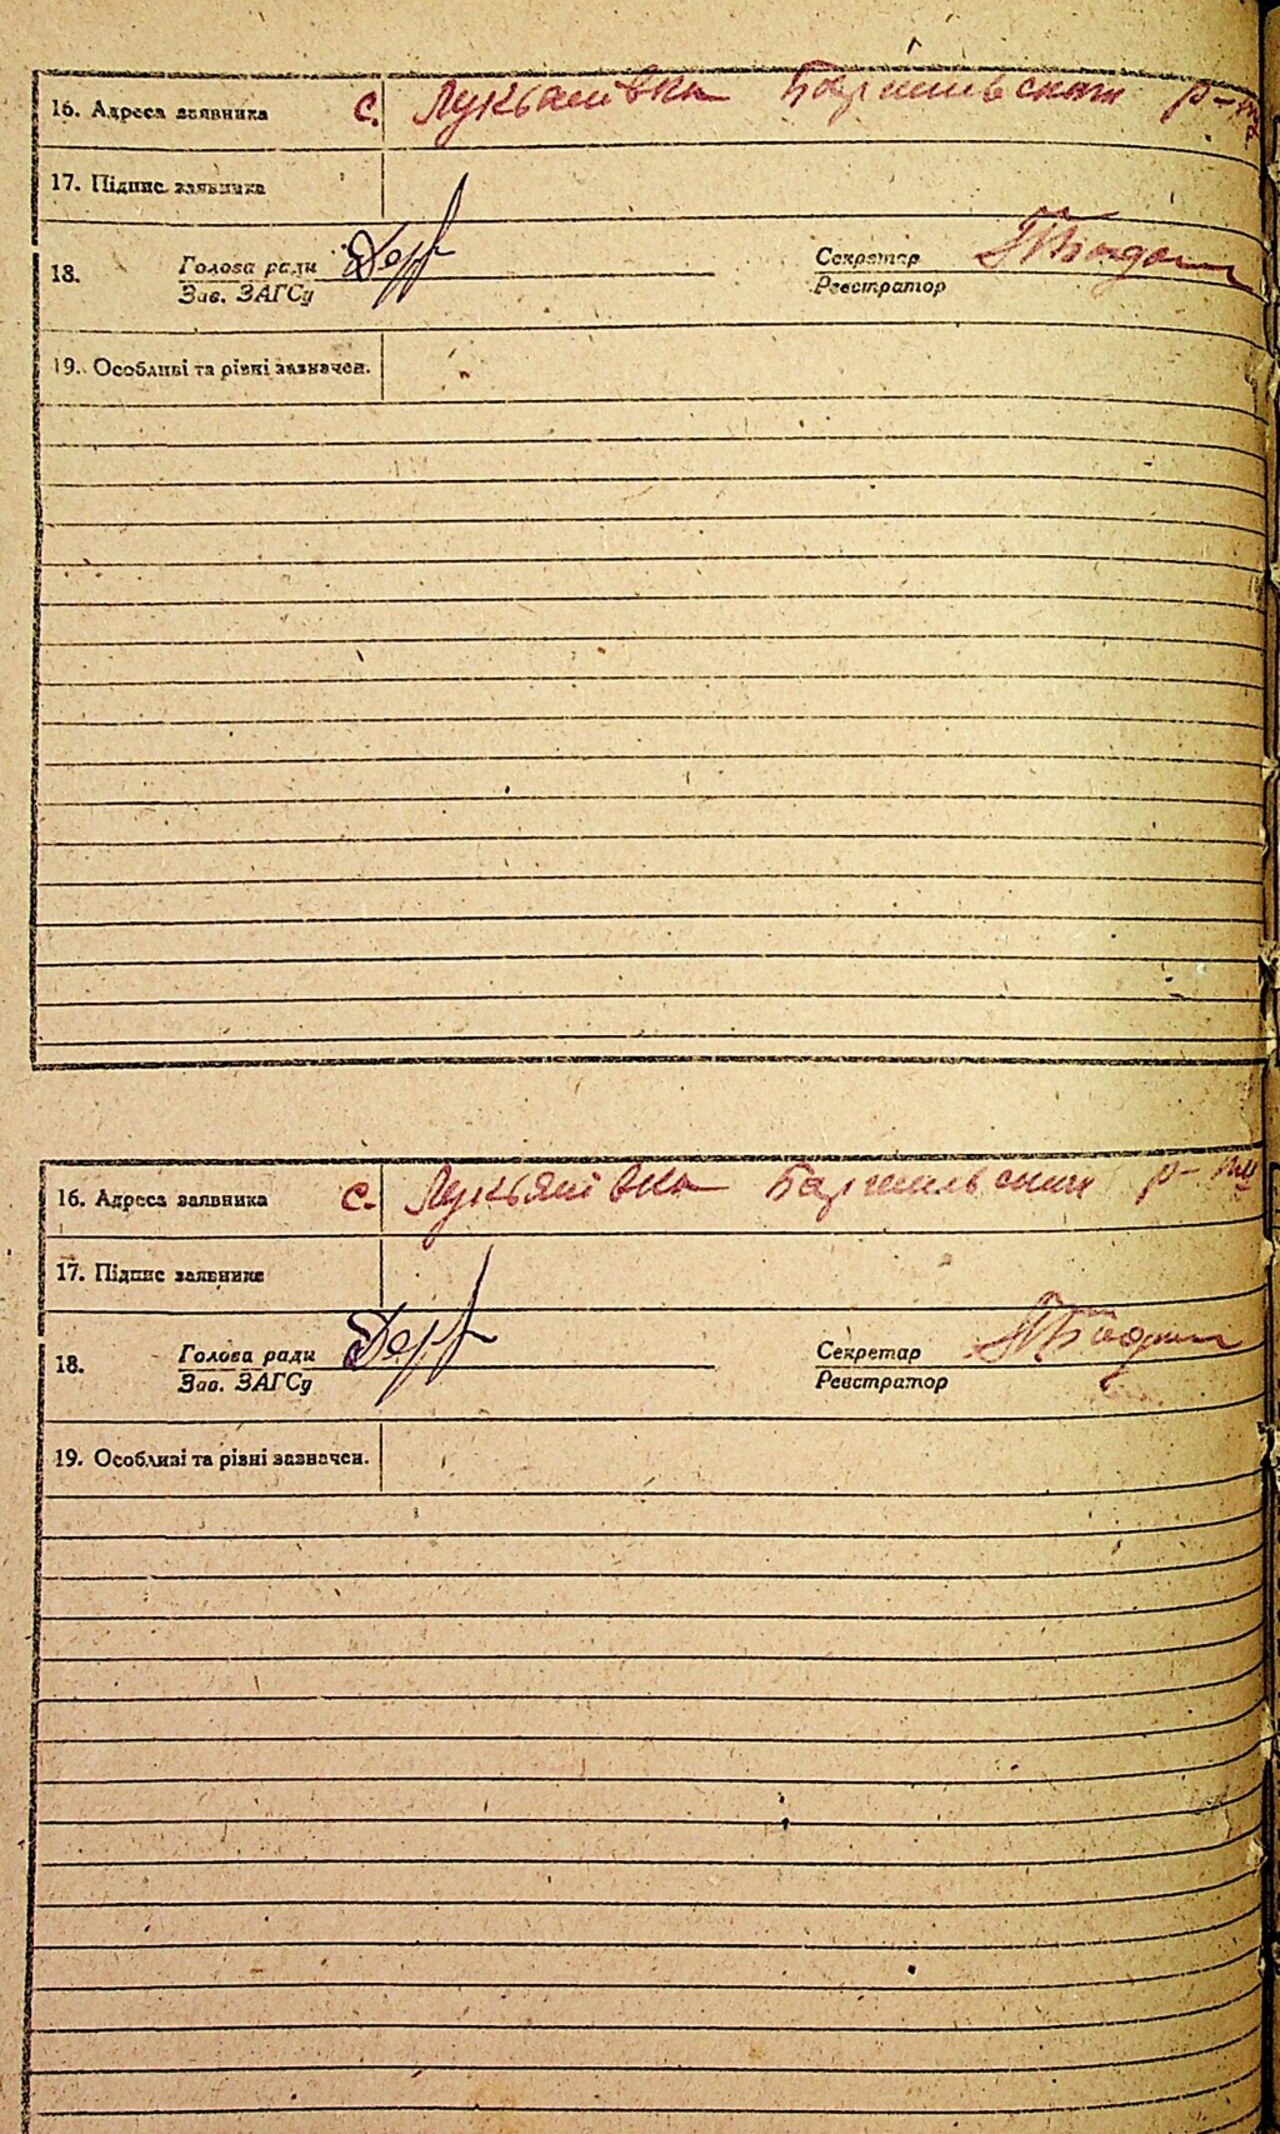 16. Адреса заявника с. Лукьянівка Баришівський р-н
17. Підпис заявника
18. Голова ради Секретар
Зав. ЗАГСу Реєстратор
19. Особливі та рівні зазначен.
16. Адреса заявника с. Лукьянівка Баришівський р-н
17. Підпис заявника
18. Голова ради Секретар
Зав. ЗАГСу Реєстратор
19. Особливі та рівні зазначен.